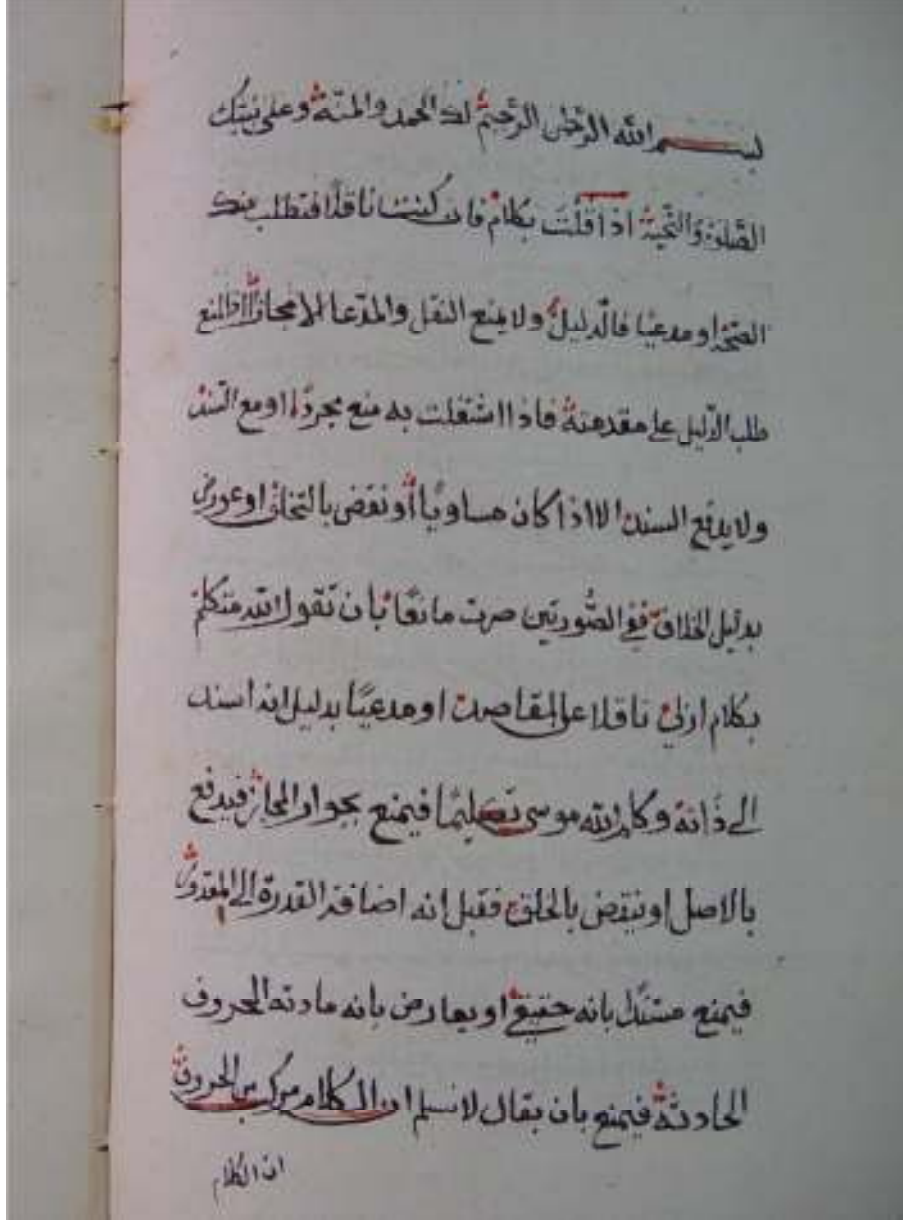 بسم الله الرحمن الرحيم لك الحمد والمنة وعلى نبيك
الصلوة والتحية اذا قلت بكلام فان كنت ناقلا فتطلب منك
الصحة او مدعيا فالدليل ولا يمنع النقل والمدعا الا مجازا اذ المنع
طلب الدليل على مقدمته فاذا اشتغلت به منع مجردا او مع السند
ولا يدفع السند الا اذا كان مساويا او نقض بالتخلف او عورض
بدليل الخلاف ففي الصورتين صرت مانعا بان تقول الله متكلم
بكلام ازلي ناقلا عن المقاصد او مدعيا بدليل انه اسند
الى ذاته وكلم الله موسى تكليما فيمنع بجواز المجاز فيدفع
بالاصل او ينقض بالخلق فقيل انه اضافة القدرة الى المقدور
فيمنع مستندا بانه حقيقي او يعارض بانه مادته الحروف
الحادثة فيمنع بان يقال لا نسلم ان الكلام مركب من الحروف
ان الكلام